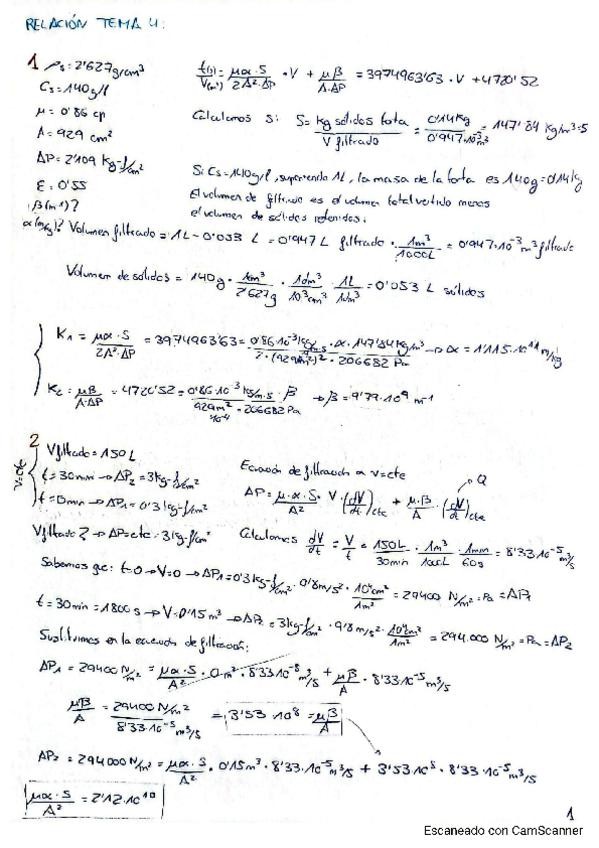 RELACIÓN TEMA 4:
1 ρs = 2'627 g/cm³
Cs = 140 g/l
μ = 0'86 cp
A = 929 cm²
ΔP = 2'109 Kg-f/cm²
ε = 0'55
¿β(m-1)?
α(m/kg)?
t(s)/V(m³) = μα·S/2A²·ΔP · V + μβ/A·ΔP = 3974963'63 · V + 4720'52
Calculamos S: S = Kg sólidos torta / V filtrado = 0'14 Kg / 0'947·10⁻³ m³ = 147'84 Kg/m³ = S
Si Cs = 140 g/l, suponiendo 1L, la masa de la torta es 140g = 0'14 kg
El volumen de filtrado es el volumen total vertido menos
el volumen de sólidos retenidos.
Volumen filtrado = 1L - 0'053 L = 0'947 L filtrado · 1m³/1000L = 0'947·10⁻³ m³ filtrado
Volumen de sólidos = 140 g · 1cm³/2'627g · 1dm³/10³cm³ · 1L/1dm³ = 0'053 L sólidos
K₁ = μα·S/2A²·ΔP = 3974963'63 = 0'86·10⁻³ kg/m·s · α · 147'84 Kg/m³ / 2·(929 m²)² · 206682 Pa → α = 1'115·10¹¹ m/kg
K₂ = μβ/A·ΔP = 4720'52 = 0'86·10⁻³ kg/m·s · β / 929 m² ·10⁻⁴ · 206682 Pa → β = 9'79·10⁹ m⁻¹
2
V=cte
Vfiltrado = 150 L
t = 30 min → ΔP₂ = 3 kg-f/cm²
t = 0 min → ΔP₁ = 0'3 kg-f/cm²
Vfiltrado? → ΔP = cte = 3 kg-f/cm²
Ecuación de filtración a v=cte
Q
ΔP = μ·α·S/A² · V · (dV/dt)cte + μ·β/A · (dV/dt)cte
Calculamos dV/dt = V/t = 150L/30min · 1m³/1000L · 1min/60s = 8'33·10⁻⁵ m³/s
Sabemos qe: t=0 → V=0 → ΔP₁ = 0'3 kg-f/cm² · 9'8 m/s² · 10⁴cm²/1m² = 29400 N/m² = Pa = ΔP₁
t = 30min = 1800 s → V = 0'15 m³ → ΔP₂ = 3 kg-f/cm² · 9'8 m/s² · 10⁴cm²/1m² = 294.000 N/m² = Pa = ΔP₂
Sustituimos en la ecuación de filtración:
ΔP₁ = 29400 N/m² = μα·S/A² · 0 m³ · 8'33·10⁻⁵ m³/s + μβ/A · 8'33·10⁻⁵ m³/s
μβ/A = 29400 N/m² / 8'33·10⁻⁵ m³/s = 3'53·10⁸ = μβ/A
ΔP₂ = 294000 N/m² = μα·S/A² · 0'15m³ · 8'33·10⁻⁵ m³/s + 3'53·10⁸ · 8'33·10⁻⁵ m³/s
μα·S/A² = 2'12·10¹⁰
1
Escaneado con CamScanner